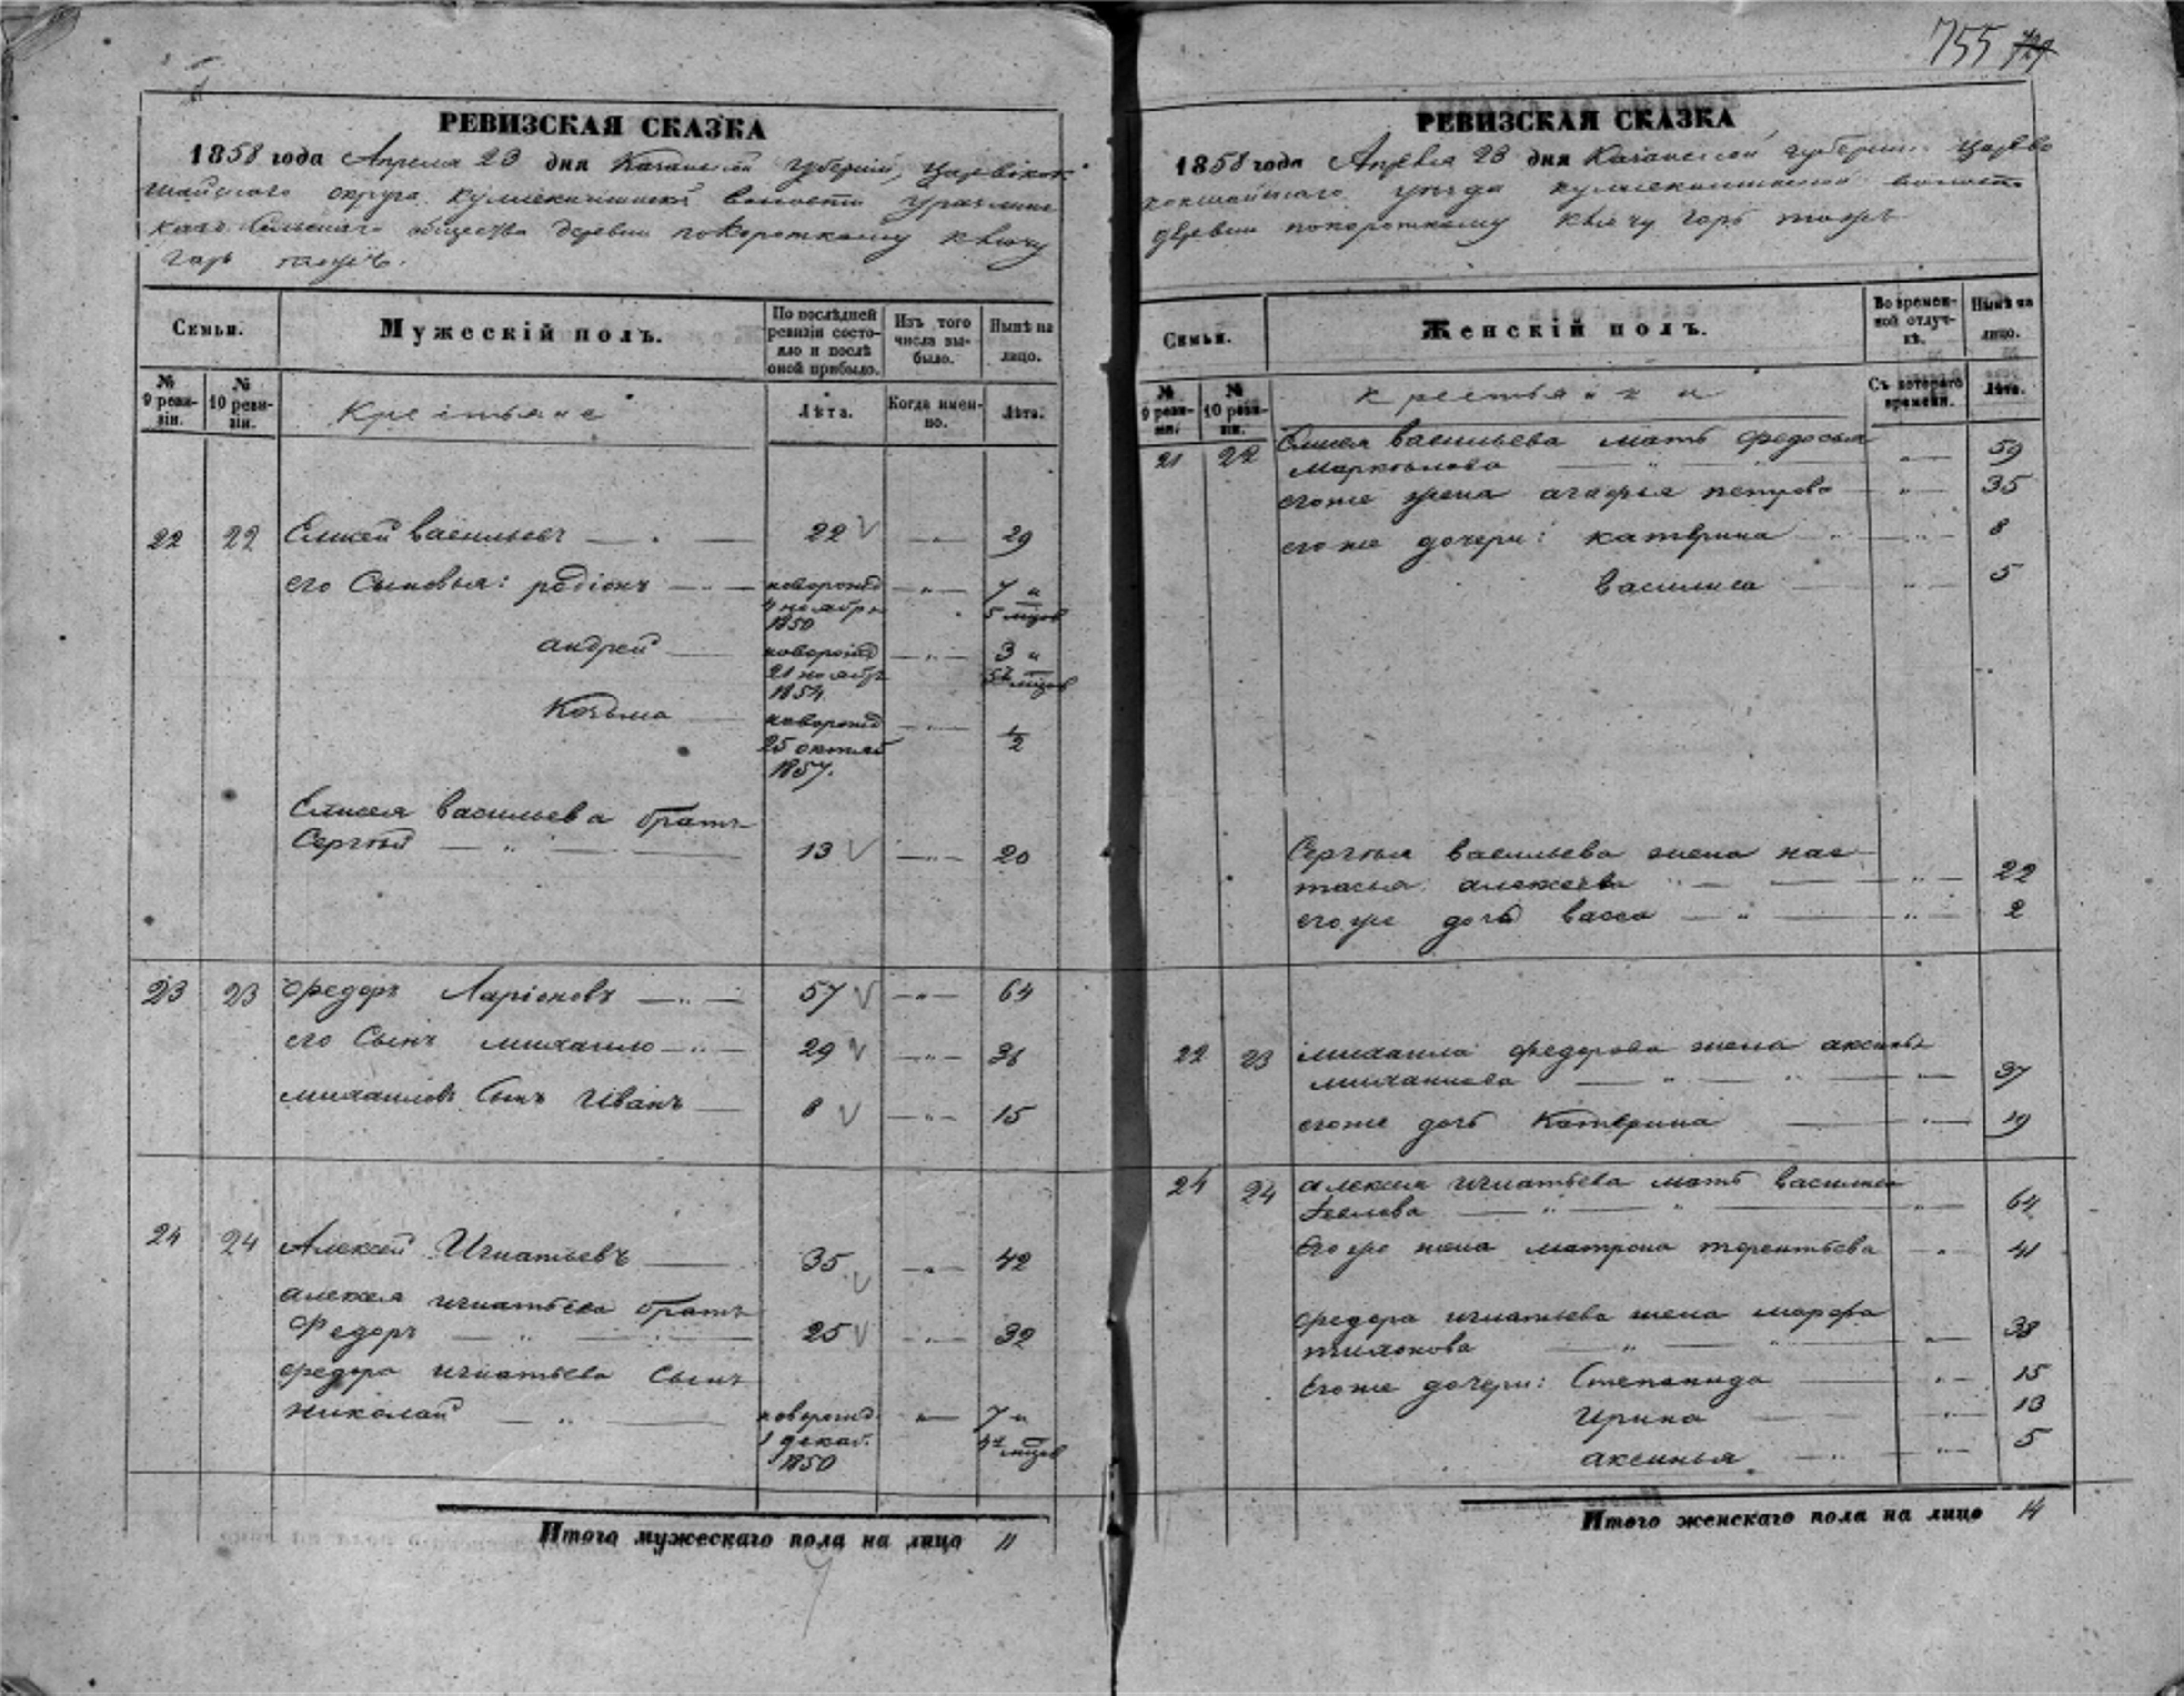 755 729
РЕВИЗСКАЯ СКАЗКА
1858 года Апреля 23 дня Казанской губернии, Царевокок
шайскаго округа Кулле волости
Сельскаго общества деревни покороткому Ключу
гарь тожъ.
Семьи.
Мужескій полъ.
По послѣдней ревизіи состояло и послѣ оной прибыло.
Изъ того числа выбыло.
Нынѣ на лицо.
№ 9 ревизіи.
№ 10 ревизіи.
Крестьяне
Лѣта.
Когда именно.
Лѣта.
22 22 Елисей Васильевъ 22 29
его Сыновья: родіонъ новорожд 7 и
4 ноября 5 мцов
1850
андрей новорожд 3 и
21 ноябр 5 мцов
1854
Козьма новорожд 1/2
25 октяб
1857.
Елисея Васильева братъ
Сергѣй 13 20
23 23 Федоръ Ларіоновъ 57 64
его Сынъ михаило 29 36
михаиловъ Сынъ Иванъ 8 15
24 24 Алексей Игнатьевъ 35 42
алексея игнатьева братъ
Федоръ 25 32
федора игнатьева Сынъ
николай новорожд 7 и
1 декаб. 4 мцов
1850
Итого мужескаго пола на лицо 11
РЕВИЗСКАЯ СКАЗКА
1858 года Апреля 23 дня Казанской губернии Царево
кокшайскаго уезда волости
деревни покороткому Ключу гарь тожъ
Семьи.
Женскій полъ.
Во временной отлучкѣ.
Нынѣ на лицо.
№ 9 ревизіи.
№ 10 ревизіи.
крестьянки
Съ котораго времени.
Лѣта.
21 22 Елисея Васильева мать Федосья
59
его же жена агафья петрова 35
его же дочери: катерина 8
василиса 5
Сергѣя васильева жена нас
тасья алексеева 22
его же дочь васса 2
22 23 михаила федорова жена аксинья
михаилова 37
его же дочь Катерина 19
24 24 алексея игнатьева мать василиса
64
Его же жена матрона терентьева 41
федора игнатьева жена марфа
тихонова 38
Его же дочери: Степанида 15
Ирина 13
аксинья 5
Итого женскаго пола на лицо 14